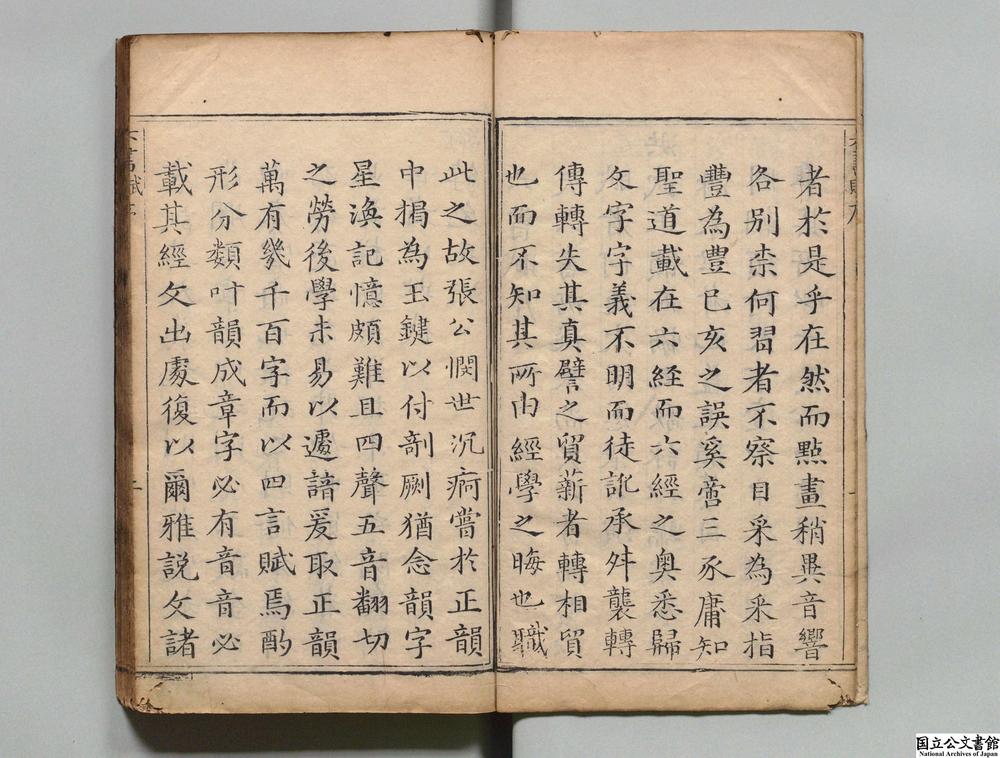 者於是乎在然而點畫稍異音響
各別柰何習者不察目采為釆指
豐為豊已亥之誤奚啻三豕庸知
聖道載在六經而六經之奥悉歸
文字字義不明而徒訛承舛襲轉
傳轉失其真譬之貿薪者轉相貿
也而不知其所由經學之晦也職
此之故張公憫世沉痾嘗於正韻
中揭為玉鍵以付剞劂猶念韻字
星渙記憶頗難且四聲五音翻切
之勞後學未易以遽諳爰取正韻
萬有幾千百字而以四言賦焉酌
形分類叶韻成章字必有音音必
載其經文出處復以爾雅説文諸
国立公文書館
National Archives of Japan